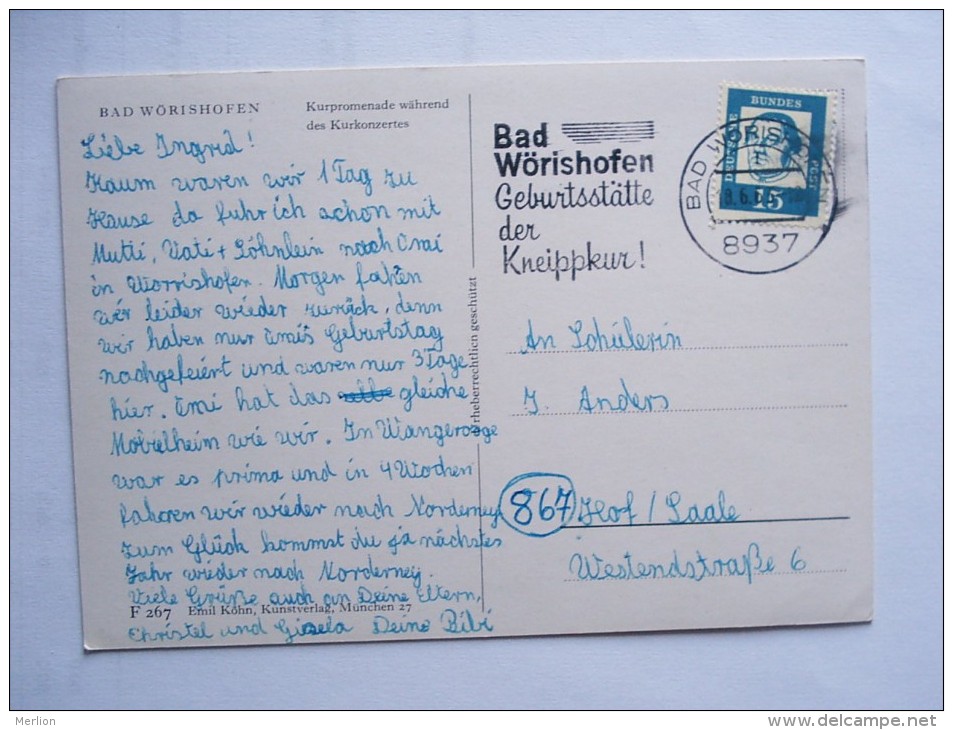 BAD WÖRISHOFEN
Kurpromenade während
des Kurkonzertes
Liebe Ingrid!
Kaum waren wir 1 Tag zu
Hause da fuhr ich schon mit
Mutti, Vati + Söhnlein nach Omi
in Wörrishofen. Morgen fahren
wir leider wieder zurück, denn
wir haben nur Omis Geburtstag
nachgefeiert und waren nur 3 Tage
hier. Omi hat das gleiche
Möbelheim wie wir. In Wangerooge
war es prima und in 4 Wochen
fahren wir wieder nach Norderney
zum Glück kommst du ja nächstes
Jahr wieder nach Norderney.
Viele Grüße auch an Deine Eltern,
Christel und Gisela Deine Bibi
F 267 Emil Köhn, Kunstverlag, München 27
rheberrechtlich geschützt
Bad
Wörishofen
Geburtsstätte
der
Kneippkur!
BAD WÖRIS
8.6.6
8937
DEUTSCHE
BUNDES
POST
15
An Schülerin
I. Anders
867 Hof / Saale
Westendstraße 6
Merlion
http://www.delcampe.net